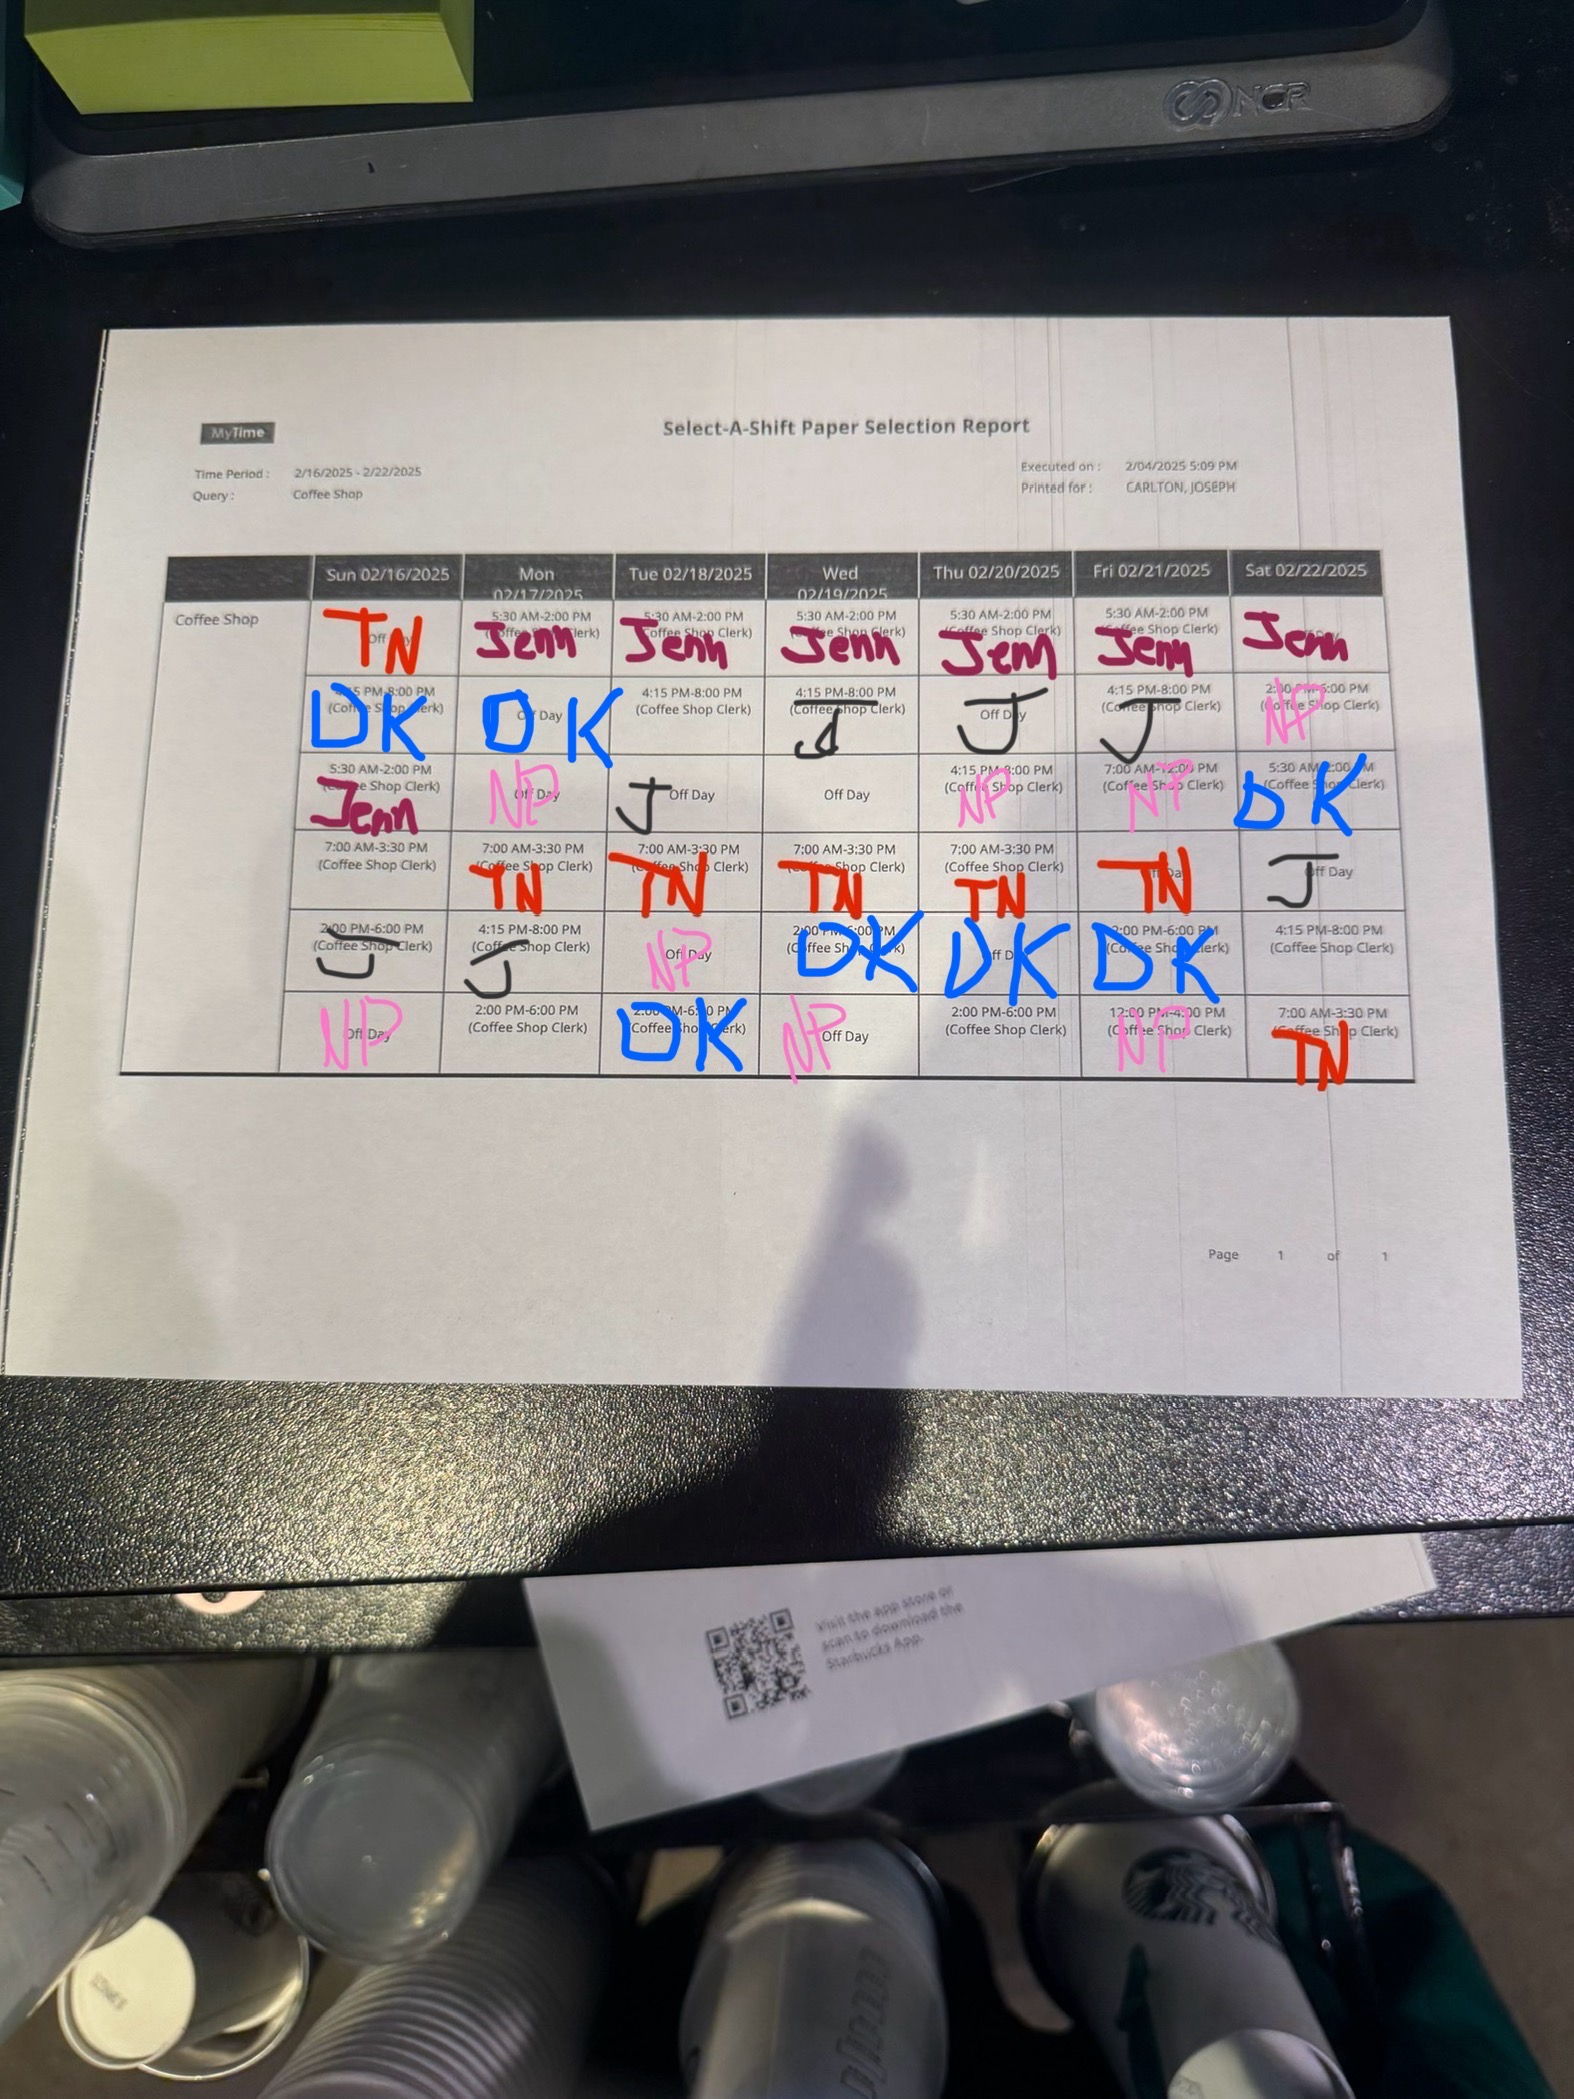 NCR
MyTime
Select-A-Shift Paper Selection Report
Time Period : 2/16/2025 - 2/22/2025
Executed on : 2/04/2025 5:09 PM
Query : Coffee Shop
Printed for : CARLTON, JOSEPH
Sun 02/16/2025 Mon 02/17/2025 Tue 02/18/2025 Wed 02/19/2025 Thu 02/20/2025 Fri 02/21/2025 Sat 02/22/2025
Coffee Shop
Off Day TN
5:30 AM-2:00 PM (Coffee Shop Clerk) Jenn
5:30 AM-2:00 PM (Coffee Shop Clerk) Jenn
5:30 AM-2:00 PM (Coffee Shop Clerk) Jenn
5:30 AM-2:00 PM (Coffee Shop Clerk) Jenn
5:30 AM-2:00 PM (Coffee Shop Clerk) Jenn
Jenn
4:15 PM-8:00 PM (Coffee Shop Clerk) DK
Off Day DK
4:15 PM-8:00 PM (Coffee Shop Clerk)
4:15 PM-8:00 PM (Coffee Shop Clerk) J
Off Day J
4:15 PM-8:00 PM (Coffee Shop Clerk) J
2:00 PM-6:00 PM (Coffee Shop Clerk) NP
5:30 AM-2:00 PM (Coffee Shop Clerk) Jenn
Off Day NP
Off Day J
Off Day
4:15 PM-8:00 PM (Coffee Shop Clerk) NP
7:00 AM-12:00 PM (Coffee Shop Clerk) NP
5:30 AM-2:00 PM (Coffee Shop Clerk) DK
7:00 AM-3:30 PM (Coffee Shop Clerk)
7:00 AM-3:30 PM (Coffee Shop Clerk) TN
7:00 AM-3:30 PM (Coffee Shop Clerk) TN
7:00 AM-3:30 PM (Coffee Shop Clerk) TN
7:00 AM-3:30 PM (Coffee Shop Clerk) TN
Off Day TN
Off Day J
2:00 PM-6:00 PM (Coffee Shop Clerk) J
4:15 PM-8:00 PM (Coffee Shop Clerk) J
Off Day NP
2:00 PM-6:00 PM (Coffee Shop Clerk) DK
Off Day DK
2:00 PM-6:00 PM (Coffee Shop Clerk) DK
4:15 PM-8:00 PM (Coffee Shop Clerk)
Off Day NP
2:00 PM-6:00 PM (Coffee Shop Clerk)
2:00 PM-6:00 PM (Coffee Shop Clerk) DK
Off Day NP
2:00 PM-6:00 PM (Coffee Shop Clerk)
12:00 PM-4:00 PM (Coffee Shop Clerk) NP
7:00 AM-3:30 PM (Coffee Shop Clerk) TN
Page 1 of 1
Visit the app store or
scan to download the
Starbucks App.